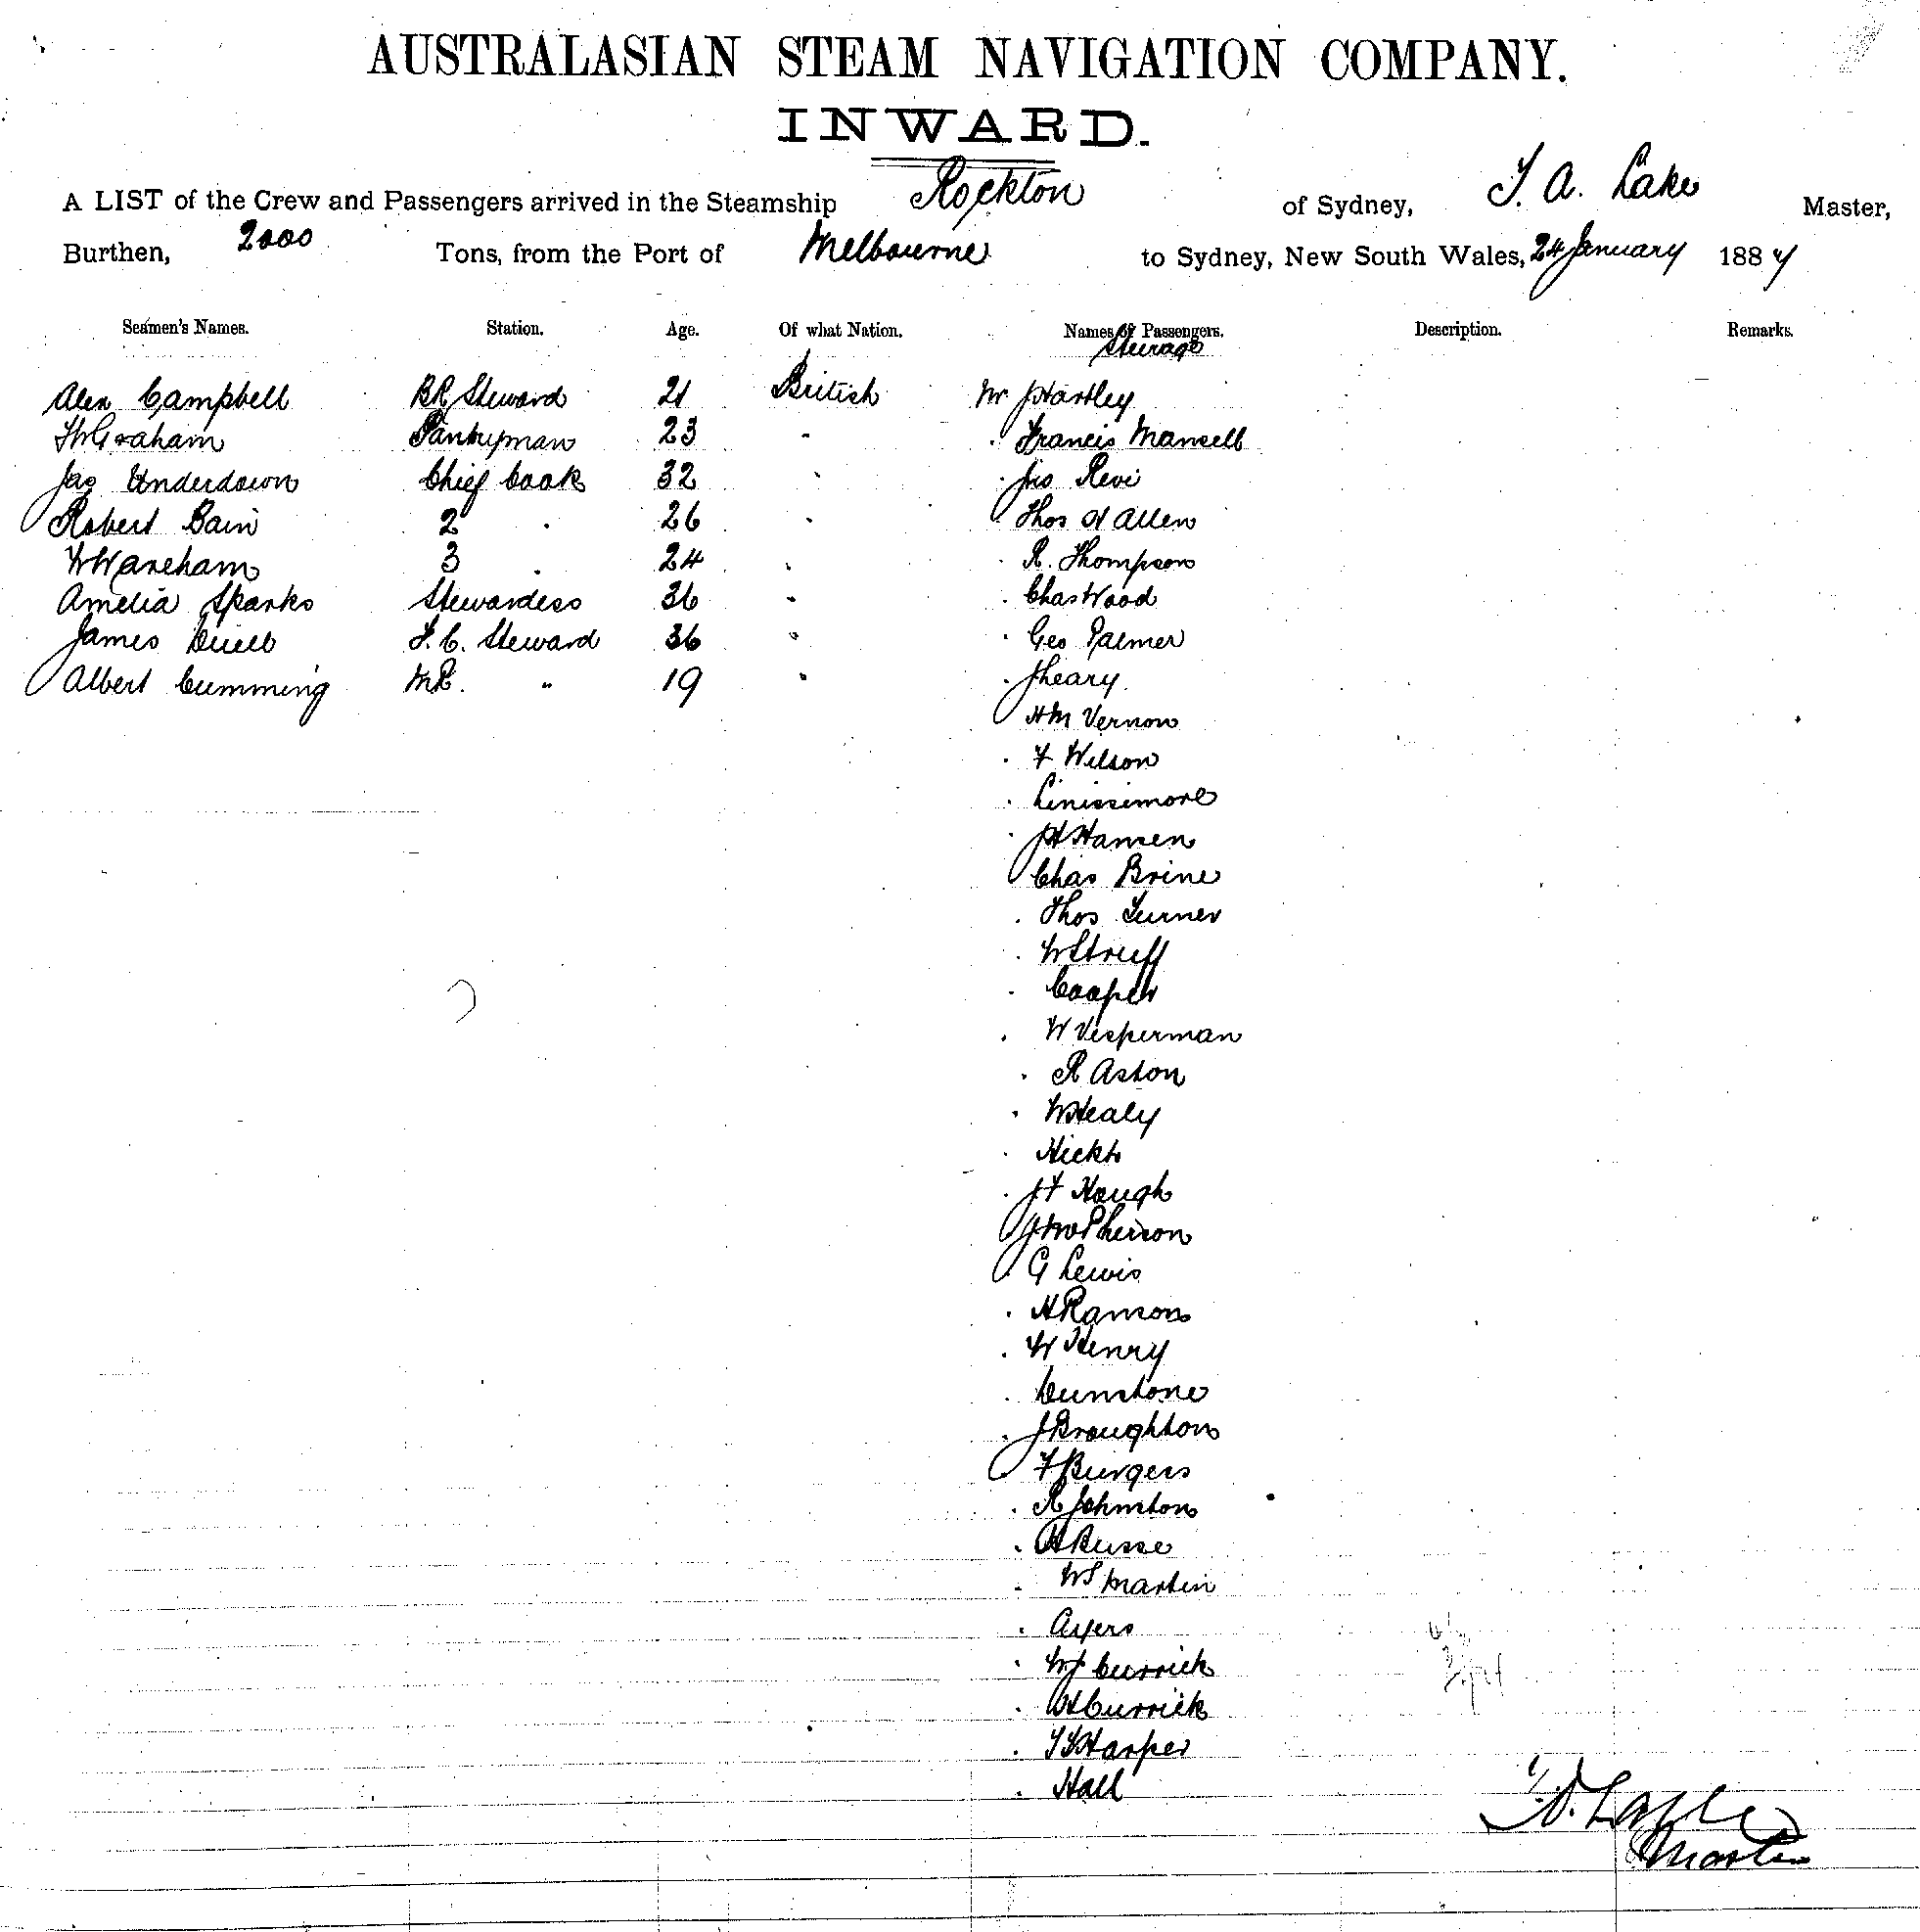 AUSTRALASIAN STEAM NAVIGATION COMPANY.
INWARD.
A LIST of the Crew and Passengers arrived in the Steamship Rockton of Sydney, T. A. Lake Master,
Burthen, 2000 Tons, from the Port of Melbourne to Sydney, New South Wales, 24 January 1887
Seamen's Names. Station. Age. Of what Nation. Names of Passengers. Description. Remarks.
Steerage
Alex Campbell BR Steward 21 British Mr J Hartley
Graham Pantryman 23 " Francis Mansell
Jas Underdown Chief Cook 32 " Jno Revi
Robert Bain 2 " 26 " Thos H Allen
W Wareham 3 " 24 " R. Thompson
Amelia Sparks Stewardess 36 " Chas Wood
James Duell F. C. Steward 36 " Geo Palmer
Albert Cumming MR. " 19 " J heary
HM Vernon
F Wilson
Linissimore
JH Hansen
Chas Brine
Thos Turner
W Struff
Cooper
W Vesperman
R Aston
W Healy
Hickts
JF Hough
J McPherson
G Lewis
H Ranson
W Henry
Cunstone
J Broughton
F Burgess
R Johnston
H Busse
WS Martin
Ayers
WJ Currick
WH Currick
TS Harper
Hall
T. A. Lake
Master